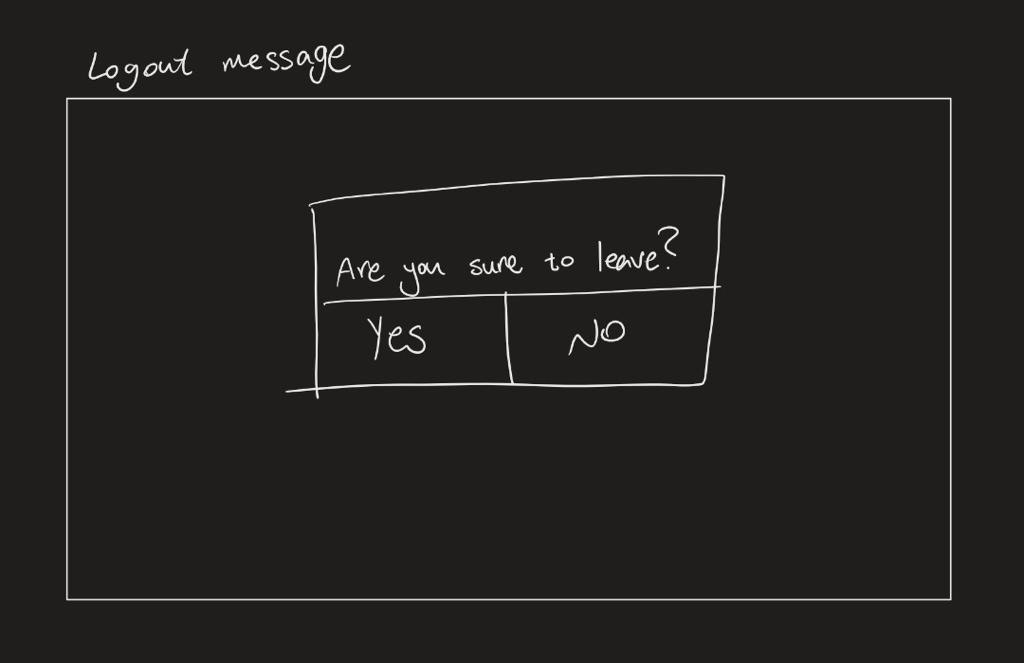 Logout message
Are you sure to leave?
Yes
NO